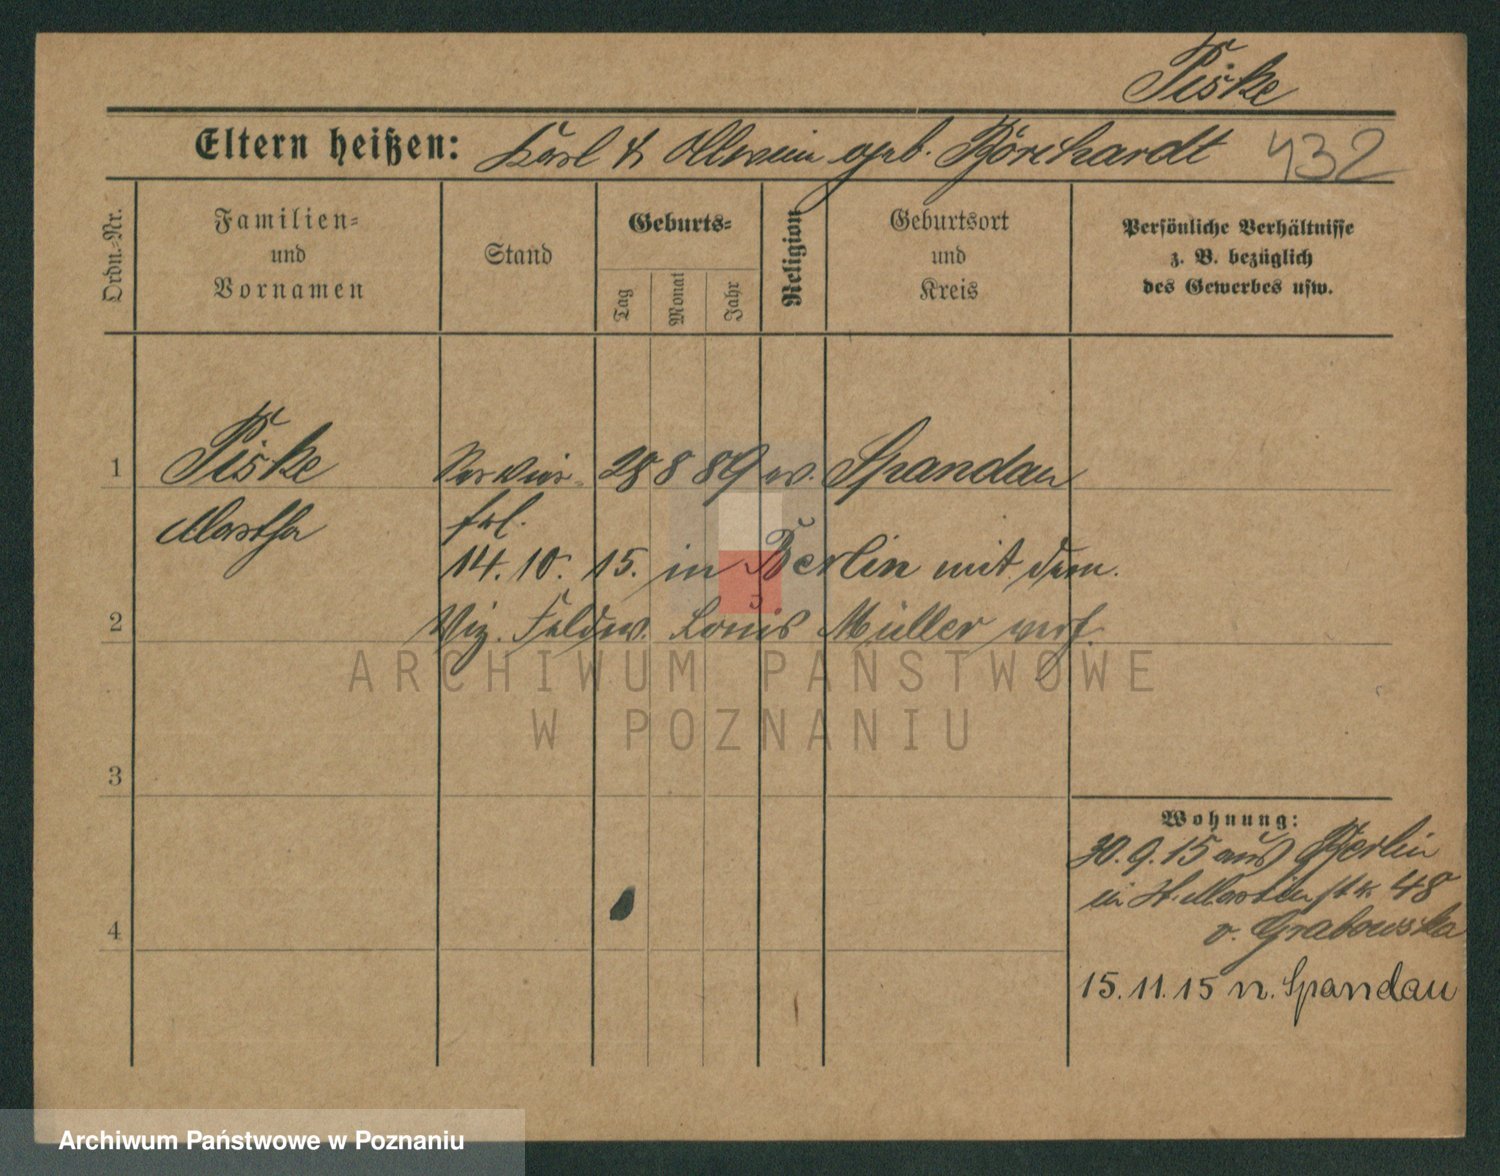 Piske
Eltern heißen: Karl & Alwein geb. Borchardt 432
Ordn.-Nr.
Familien-
und
Vornamen
Stand
Geburts-
Tag
Monat
Jahr
Religion
Geburtsort
und
Kreis
Persönliche Verhältnisse
z. B. bezüglich
des Gewerbes usw.
1 Piske Servier- 28 8 89 ev. Spandau
Martha frl.
14. 10. 15. in Berlin mit dem
2
Viz. Feldw. Louis Müller verh.
ARCHIWUM PAŃSTWOWE
W POZNANIU
3
Wohnung:
30. 9. 15 aus Berlin
in St. Martin str 48
4
v. Grabowska
15. 11. 15 n. Spandau
Archiwum Państwowe w Poznaniu